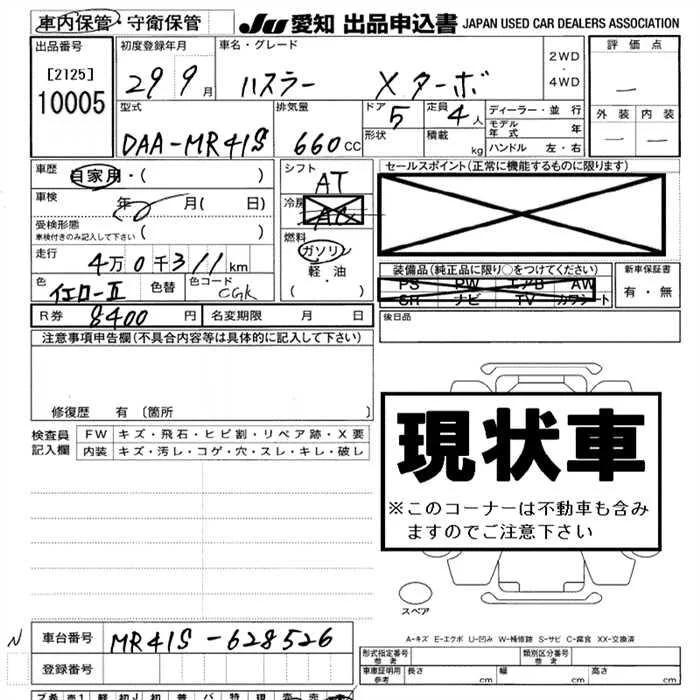 車内保管・守衛保管 JU 愛知 出品申込書 JAPAN USED CAR DEALERS ASSOCIATION
出品番号 初度登録年月 車名・グレード 評価点
[2125] 29 9月 ハスラー Xターボ 2WD・4WD —
10005
型式 排気量 ドア 5 定員 4人 ディーラー・並行 外装 内装
形状 積載 kg モデル年式 年
DAA-MR41S 660cc ハンドル 左・右 — —
車歴 自家用・( ) シフト AT セールスポイント(正常に機能するものに限ります)
車検 年 月( 日) 冷房 AC
受検形態 ( )
車検付きのみ記入して下さい
燃料 ガソリン
軽・油
・( )
走行 4万0千311km
装備品(純正品に限り○をつけてください) 新車保証書
PS PW エアB AW 有・無
SR ナビ TV カワシート
色 イエローII 色替 色コード CGK
R券 8400円 名変期限 月 日 後日品
注意事項申告欄(不具合内容等は具体的に記入して下さい)
修復歴 有〔箇所 〕
現状車
※このコーナーは不動車も含み
ますのでご注意下さい
検査員記入欄 FW キズ・飛石・ヒビ割・リペア跡・X要
内装 キズ・汚レ・コゲ・穴・スレ・キレ・破レ
スペア
A-キズ E-エクボ U-凹み W-補修跡 S-サビ C-腐食 XX-交換済
N 車台番号 MR41S-628526
登録番号
形式指定番号 参考 類別区分番号 参考
車庫証明用 参考 長さ cm 幅 cm 高さ cm